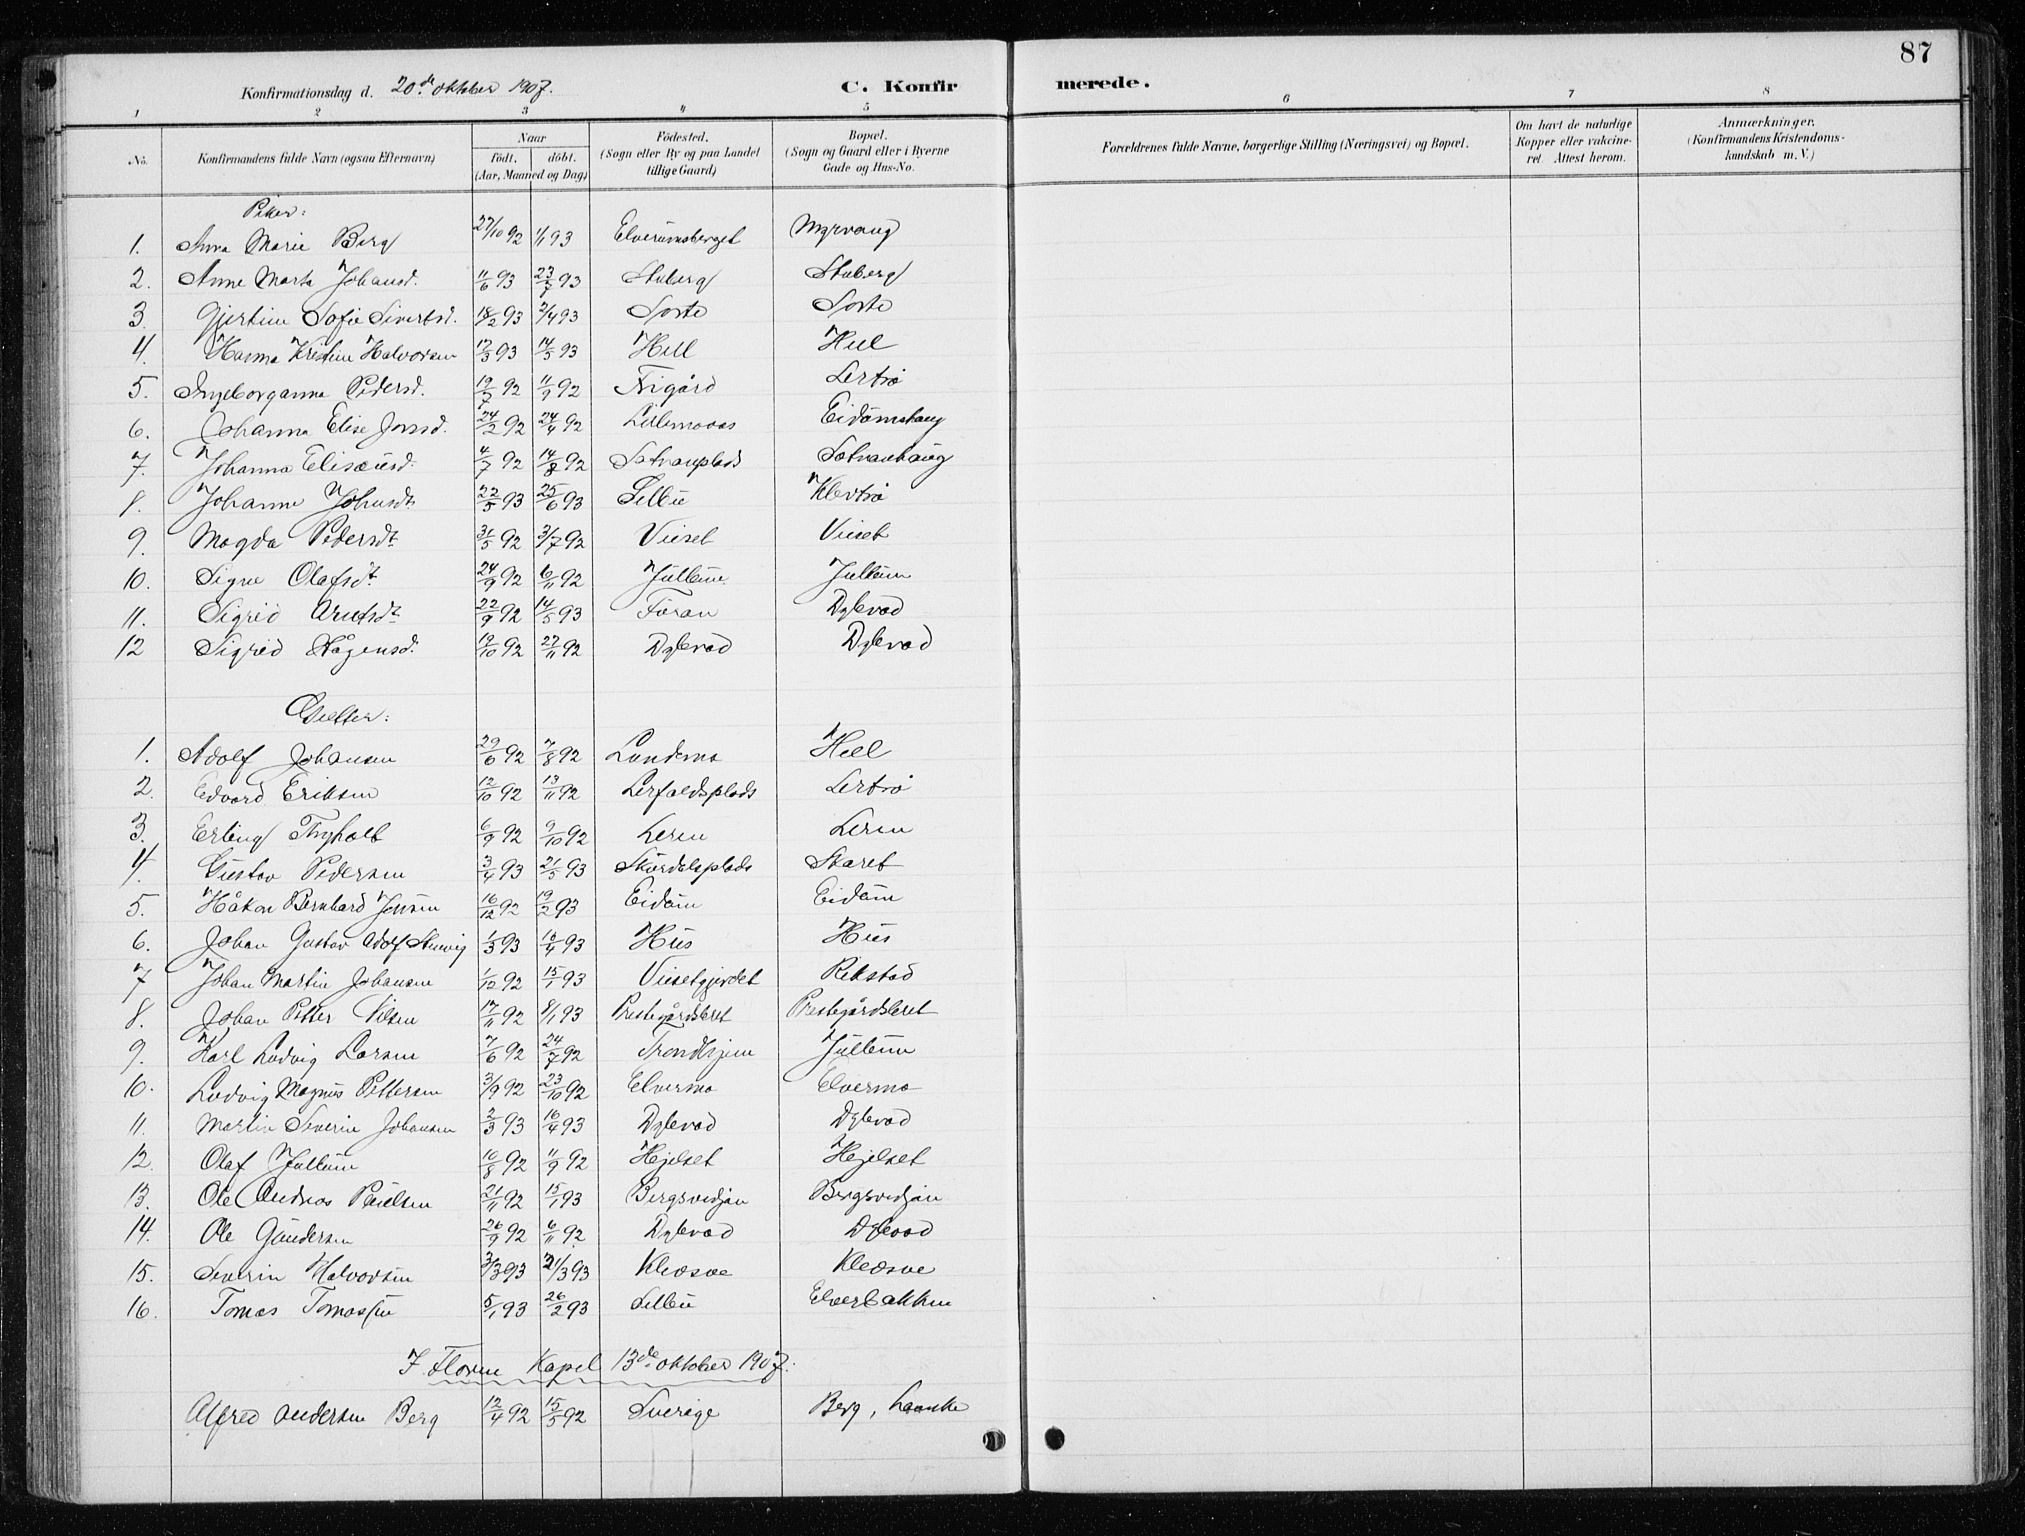 87
Konfirmationsdag d. 20de oktober 1907.
C. Konfirmerede.
1 2 3 4 5 6 7 8
No.
Konfirmandens fulde Navn (ogsaa Efternavn)
Naar
født. døbt.
(Aar, Maaned og Dag)
Fødested.
(Sogn eller By og paa Landet
tillige Gaard)
Bopæl.
(Sogn og Gaard eller i Byerne
Gade og Hus-No.
Forældrenes fulde Navne, borgerlige Stilling (Næringsvei) og Bopæl.
Om havt de naturlige
Kopper eller vakcine-
ret. Attest herom.
Anmærkninger.
(Konfirmandens Kristendoms-
kundskab m. V.)
Piker:
1. Anna Marie Berg 27/10 92 1/1 93 Elverumsberget Myrvang
2. Anne Marta Johansd. 11/6 93 23/7 93 Stuberg Stuberg
3. Gjertine Sofie Sivertsd. 18/2 93 2/4 93 Sorte Sorte
4. Hanna Kristine Halvorsen 17/3 93 14/5 93 Hell Hell
5. Ingeborganna Pedersd. 19/7 92 11/9 92 Nigård Lertrø
6. Johanna Elise Jonsd. 24/2 92 24/4 92 Lillemoaas Eidumshaug
7. Johanna Elisæusd. 4/7 92 14/8 92 Sotvanplads Sotvanhaug
8. Johanne Johnsdt. 22/5 93 25/6 93 Selbu Klevtrø
9. Magda Pedersdt. 31/5 92 3/7 92 Viuset Viuset
10. Signe Olafsdt. 24/9 92 6/11 92 Jullum Jullum
11. Sigrid Arntsdt. 22/9 92 14/5 93 Foran Dyblevad
12 Sigrid Hågensd. 19/10 92 27/11 92 Dyblevad Dyblevad
Gutter:
1. Adolf Johansen 29/6 92 7/8 92 Landemo Hell
2. Edvard Eriksen 12/10 92 13/11 92 Lerfaldsplads Lertrø
3. Erling Thyholt 6/9 92 9/10 92 Leren Leren
4. Gustav Pedersen 3/4 93 21/5 93 Skjördalsplads Skaret
5. Håkon Bernhard Jensen 16/12 92 19/2 93 Eidum Eidum
6. Johan Gustav Adolf Stuwig 1/3 93 16/4 93 Hus Hus
7 Johan Martin Johansen 1/12 92 15/1 93 Viusetgjerdet Rekstad
8. Johan Petter Nilsen 17/11 92 8/1 93 Prestegårdsleret Prestegårdsleret
9. Karl Ludvig Larsen 7/6 92 24/7 92 Trondhjem Jullum
10. Ludvig Magnus Pettersen 3/9 92 23/10 92 Elvermo Elvermo
11. Martin Severin Johansen 2/3 93 16/4 93 Dyblevad Dyblevad
12. Olaf Jullum 10/8 92 11/9 92 Hejelset Hejelset
13. Ole Andreas Paulsen 21/11 92 15/1 93 Bergsvedjan Bergsvedjan
14. Ole Gundersen 26/9 92 6/11 92 Dyblevad Dyblevad
15. Severin Halvorsen 3/3 93 31/3 93 Klæsve Klæsve
16. Tomas Tomassen 5/1 93 26/2 93 Selbu Elverbakken
I Floren Kapel 13de oktober 1907.
Alfred Andersen Berg 12/4 92 15/5 92 Sverige Berg, Laanke